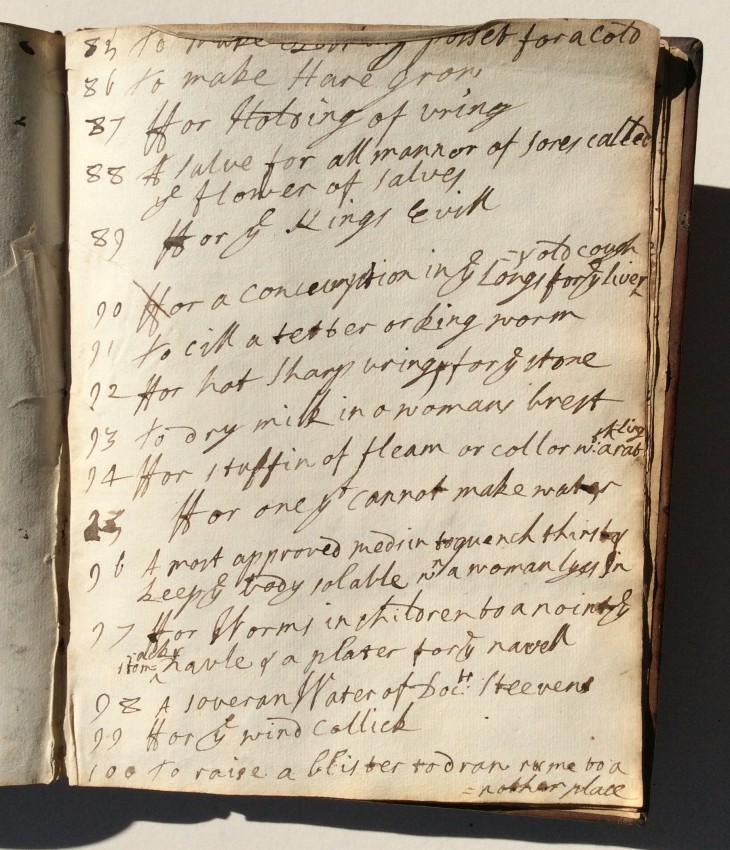 85 To make posset for a Cold
86 to make Hare grow
87 ffor Holding of vring
88 A salve for all mannor of sores called
ye flower of salves
89 ffor ye Kings Evill
=y old cough
90 ffor a Concumption in ye Longs for ye liver
91 to cill a tetter or Ring worm
92 ffor hot sharp vring for ye stone
93 to dry milk in a womans brest
94 ffor stuffin of fleam or collor
95 ffor one yt cannot make water
96 A most approved medsin to quench thirst
keep ye body solable wn a woman lyes In
97 ffor Worms in Children to anoint ye
navle & a plater for ye navell
98 A soveran Water of Doctr: Steevens
99 ffor ye wind Collick
100 To raise a blister to draw rume to a
=nother place